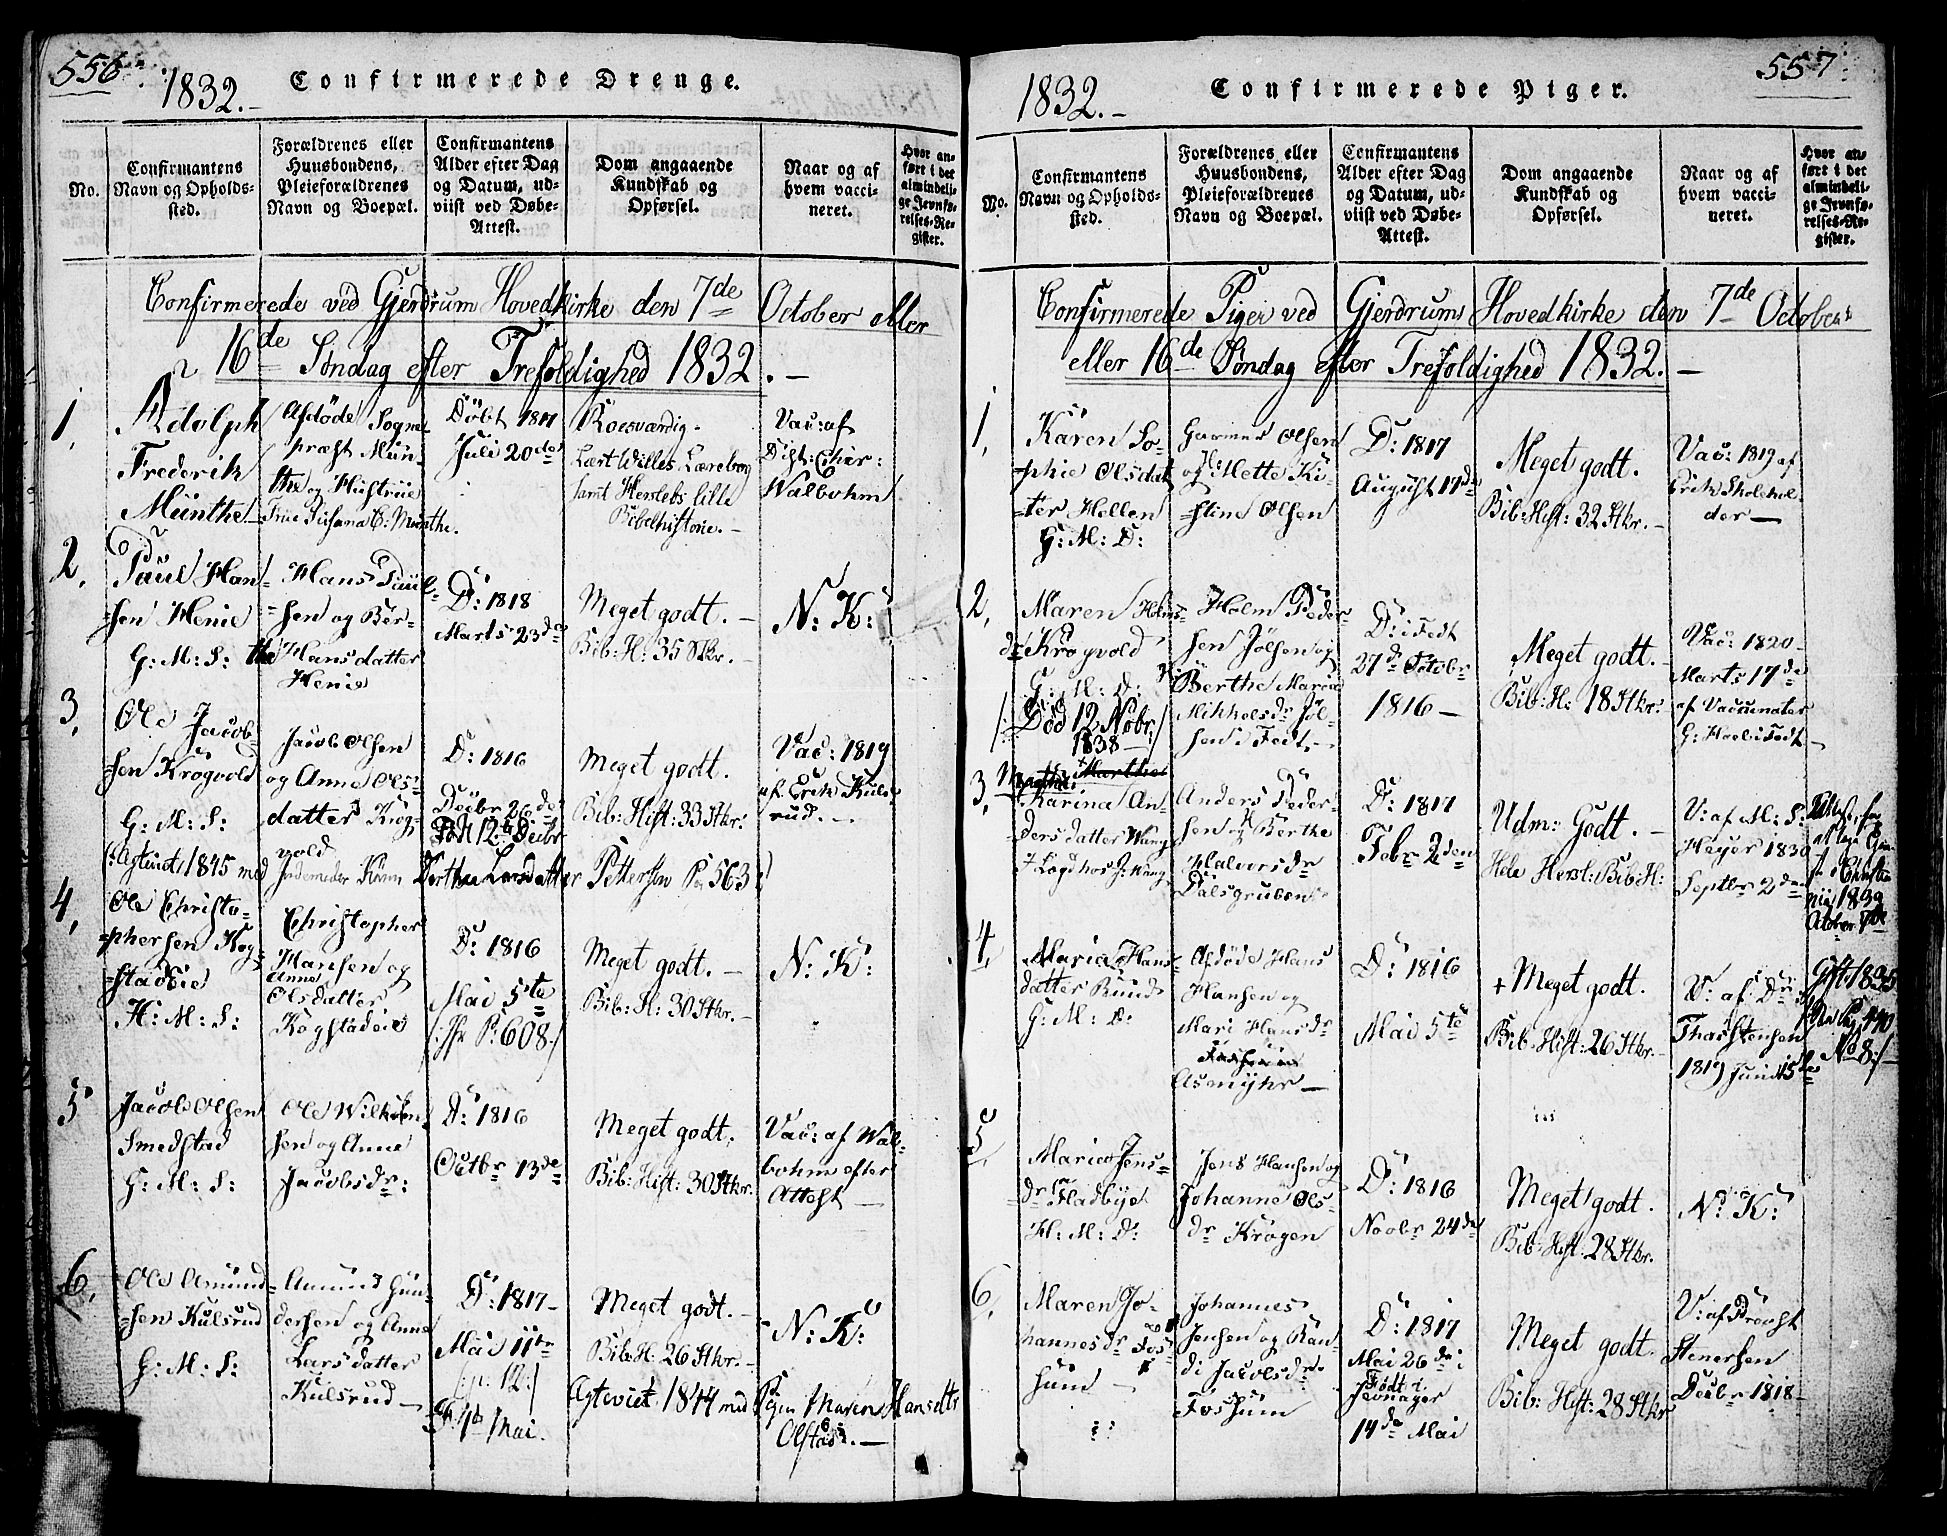 556
1832.-
Confirmerede Drenge.
No.
Confirmantens
Navn og Opholds-
sted.
Forældrenes eller
Huusbondens,
Pleieforældrenes
Navn og Boepæl.
Confirmantens
Alder efter Dag
og Datum, ud-
viist ved Døbe-
Attest.
Dom angaaende
Kundskab og
Opførsel.
Naar og af
hvem vacci-
neret.
Hvor an-
ført i det
almindeli-
ge Jevnfø-
relses-Re-
gister.
Confirmerede ved Gjerdrum Hovedkirke den 7de October eller
16de Søndag efter Trefoldighed 1832.-
1.
Adolph
Frederik
Münthe
Afdøde Sogne-
præst Mün-
the og Hustrue
Døbt 1817
Juli 20de
Roesværdig.
Lært Willes Lærebog
samt Herslebs lille
Bibelhistorie.-
Vac: af
Dist: Chir:
Walbohm
2.
Paul Han-
sen Henie
G: M: S:
Hans Paul-
sen og Ber-
the Hansdatter
Henie
D: 1818
Marts 23de
Meget godt.-
Bib: H: 35 Stkr.-
N: K:
3.
Ole Jacob-
sen Krogvold
G: M: S:
Jacob Olsen
og Anne Ols-
datter Krog-
vold
D: 1816
Decbr 26de
Født 12te Decbr
Meget godt.
Bib: Hist: 33 Stkr:
Vac: 1819
af Erik Kuls-
rud.-
Ægteviet 1845 med
Dorthea Larsdatter Pettersen Pag 563
4.
Ole Christo-
phersen Kog-
stadeie
H: M: S:
Christopher
Hansen og
Anne
Olsdatter
Kogstadeie
D: 1816
Mai 5te
P: 608./
Meget godt.-
Bib: H: 30 Stkr.-
N: K:
5
Jacob Olsen
Smedstad
G: M: S:
Ole Wilhelm-
sen og Anne
Jacobsdr:
D: 1816
Octbr 13de
Meget godt.
Bib: Hist: 30 Stkr.
Vac: af Wal-
bohm efter
Attest
6.
Ole Amund-
sen Kulsrud
G: M: S:
Amund Gun-
dersen og Anne
Larsdatter
Kulsrud
D: 1817
Mai 11te
F. 4de Mai.
Meget godt.-
Bib: H: 26 Stkr.-
N: K:
Ægteviet 1844 med Pigen Maren Hansdtr
Olstad.-
557
1832.-
Confirmerede Piger.
No.
Confirmantens
Navn og Opholds-
sted.
Forældrenes eller
Huusbondens,
Pleieforældrenes
Navn og Boepæl.
Confirmantens
Alder efter Dag
og Datum, ud-
viist ved Døbe-
Attest.
Dom angaaende
Kundskab og
Opførsel.
Naar og af
hvem vacci-
neret.
Hvor an-
ført i det
almindeli-
ge Jevnfø-
relses-Re-
gister.
Confirmerede Piger ved Gjerdrums Hovedkirke den 7de October
eller 16de Søndag efter Trefoldighed 1832.-
1.
Karen So-
phie Olsdat-
ter Hellen
G: M: D:
Olsen
og Mette Ki-
stine Olsen
D: 1817
August 17de
Meget godt.
Bib: Hist: 32 Stkr.-
Vac: 1819 af
Erik Skolehol-
der
2.
Maren Holms-
dr Krogvold
G: M: D:
Død 12 Nobr:
1838
Holm Peder-
sen Jølsen og
Berthe Marie
Mikkelsdr Jøl-
sen i Fedt
D: i Fedt
27de Octobr
1816
Meget godt.-
Bib: H: 18 Stkr:
Vac: 1820
Marts 17de
af Vaccinateur
G: Hoel i Fedt
3.
Marthe
Karina An-
dersdatter Wang
Anders Peder-
sen og Berthe
Halvorsdr
Dalsgruben
D: 1817
Febr 2den
Udm: Godt.-
Hele Hersl: Bib: H:
V: af M: S:
Heyer 1830
Septbr 2den
1839
4.
Maria Hans-
datter Rund
G: M: D:
Afdøde Hans
Hansen og
Mari Hansdr
Asmyhr
D: 1816
Mai 5te
+ Meget godt.
Bib: Hist: 26 Stkr.-
V: af Dr
Thorstensen
1819 Juni 15de
Gift 1835
Pag 440
No 8./
5.
Maria Jens-
dr Fladbye
H: M: D:
Jens Hansen og
Johanne Ols-
dr Krogen
D: 1816
Novbr 24de
Meget godt.
Bib: Hist: 28 Stkr.
N: K:
6.
Maren Jo-
hannesdr Fos-
hum
Johannes
Jensen og Ran-
di Jacobsdr
Foshum
D: 1817
Mai 26de i
Født i
14de Mai
Meget godt.
Bib: Hist: 28 Stkr
V: af Provst
Stenersen
Decbr 1818